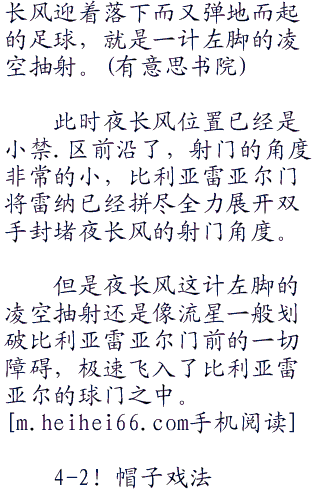 长风迎着落下而又弹地而起
的足球，就是一计左脚的凌
空抽射。(有意思书院)
此时夜长风位置已经是
小禁.区前沿了，射门的角度
非常的小，比利亚雷亚尔门
将雷纳已经拼尽全力展开双
手封堵夜长风的射门角度。
但是夜长风这计左脚的
凌空抽射还是像流星一般划
破比利亚雷亚尔门前的一切
障碍，极速飞入了比利亚雷
亚尔的球门之中。
[m.heihei66.com手机阅读]
4-2！帽子戏法